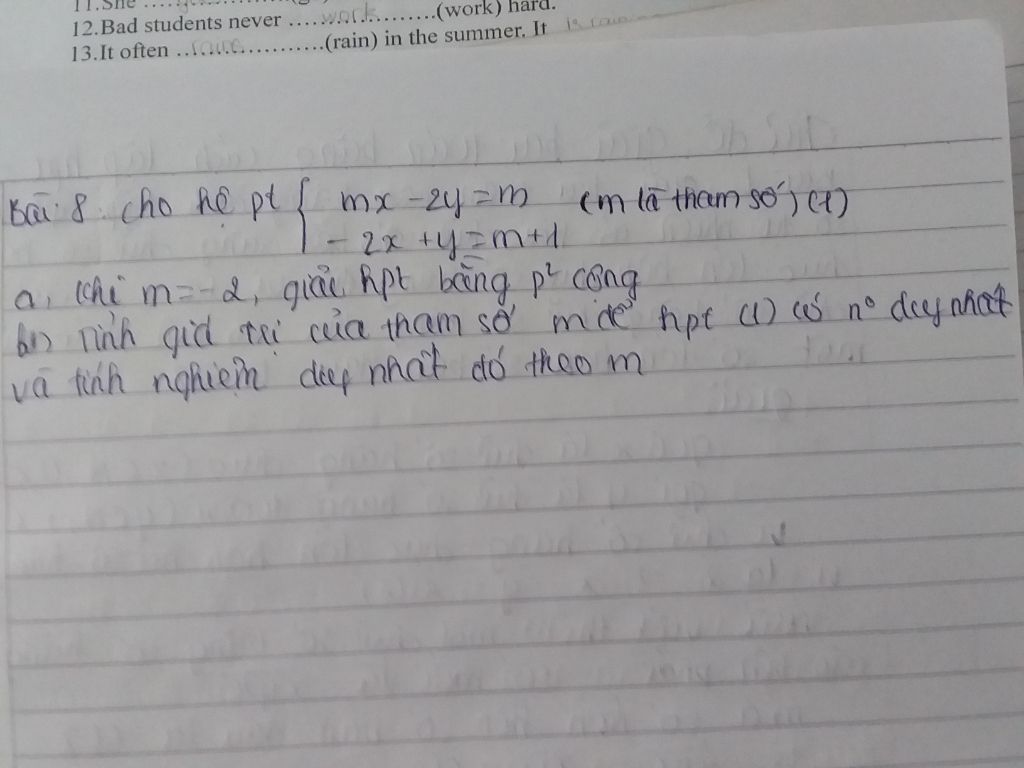 11.She
12.Bad students never ....work........(work) hard.
13.It often ..................(rain) in the summer. It is rain
Bài 8. cho hệ pt { mx - 2y = m (m là tham số) (1)
- 2x + y = m + 1
a, khi m = -2, giải hpt bằng p² cộng
b, Tính giá trị của tham số m để hpt (1) có n° duy nhất
và tính nghiệm duy nhất đó theo m